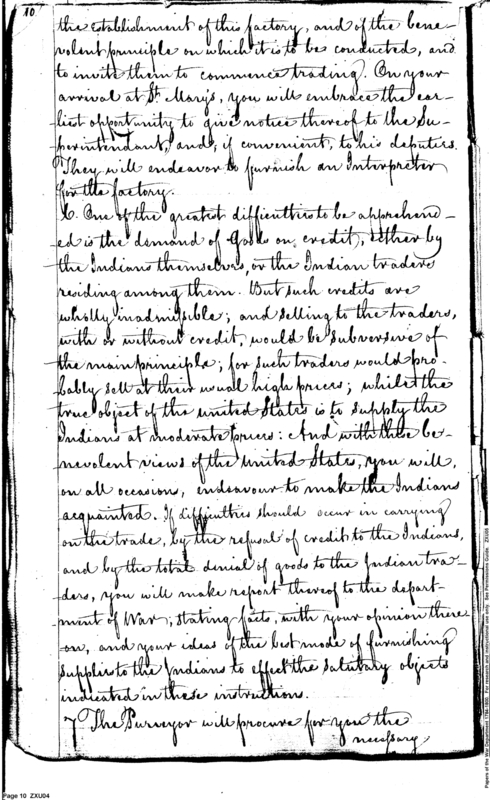 10
the establishment of this factory, and of the bene-
volent principle on which it is to be conducted, and
to invite them to commence trading. On your
arrival at St. Mary's, you will embrace the ear-
liest opportunity to give notice thereof to the Su-
perintendant, and, if convenient, to his deputies.
They will endeavor to furnish an Interpreter
for the factory.
6. One of the greatest difficulties to be apprehend-
ed is the demand of Goods on credit, either by
the Indians themselves, or the Indian traders
residing among them. But such credits are
wholly inadmissible; and selling to the traders,
with or without credit, would be subversive of
the main principle; for such traders would pro-
bably sell at their usual high prices; while the
true object of the united States is to supply the
Indians at moderate prices: And with these be-
nevolent views of the united States, you will,
on all occasion, endeavour to make the Indians
acquainted. If difficulties should occur in carrying
on the trade, by the refusal of credit to the Indians,
and by the total denial of goods to the Indian tra-
ders, you will make report thereof to the depart-
ment of War; stating facts, with your opinion there-
on, and your ideas of the best mode of furnishing
supplies to the Indians to effect the salutary objects
indicated in these instructions.
7 The Purveyor will procure for you the
necessary
Page 10 ZXU04